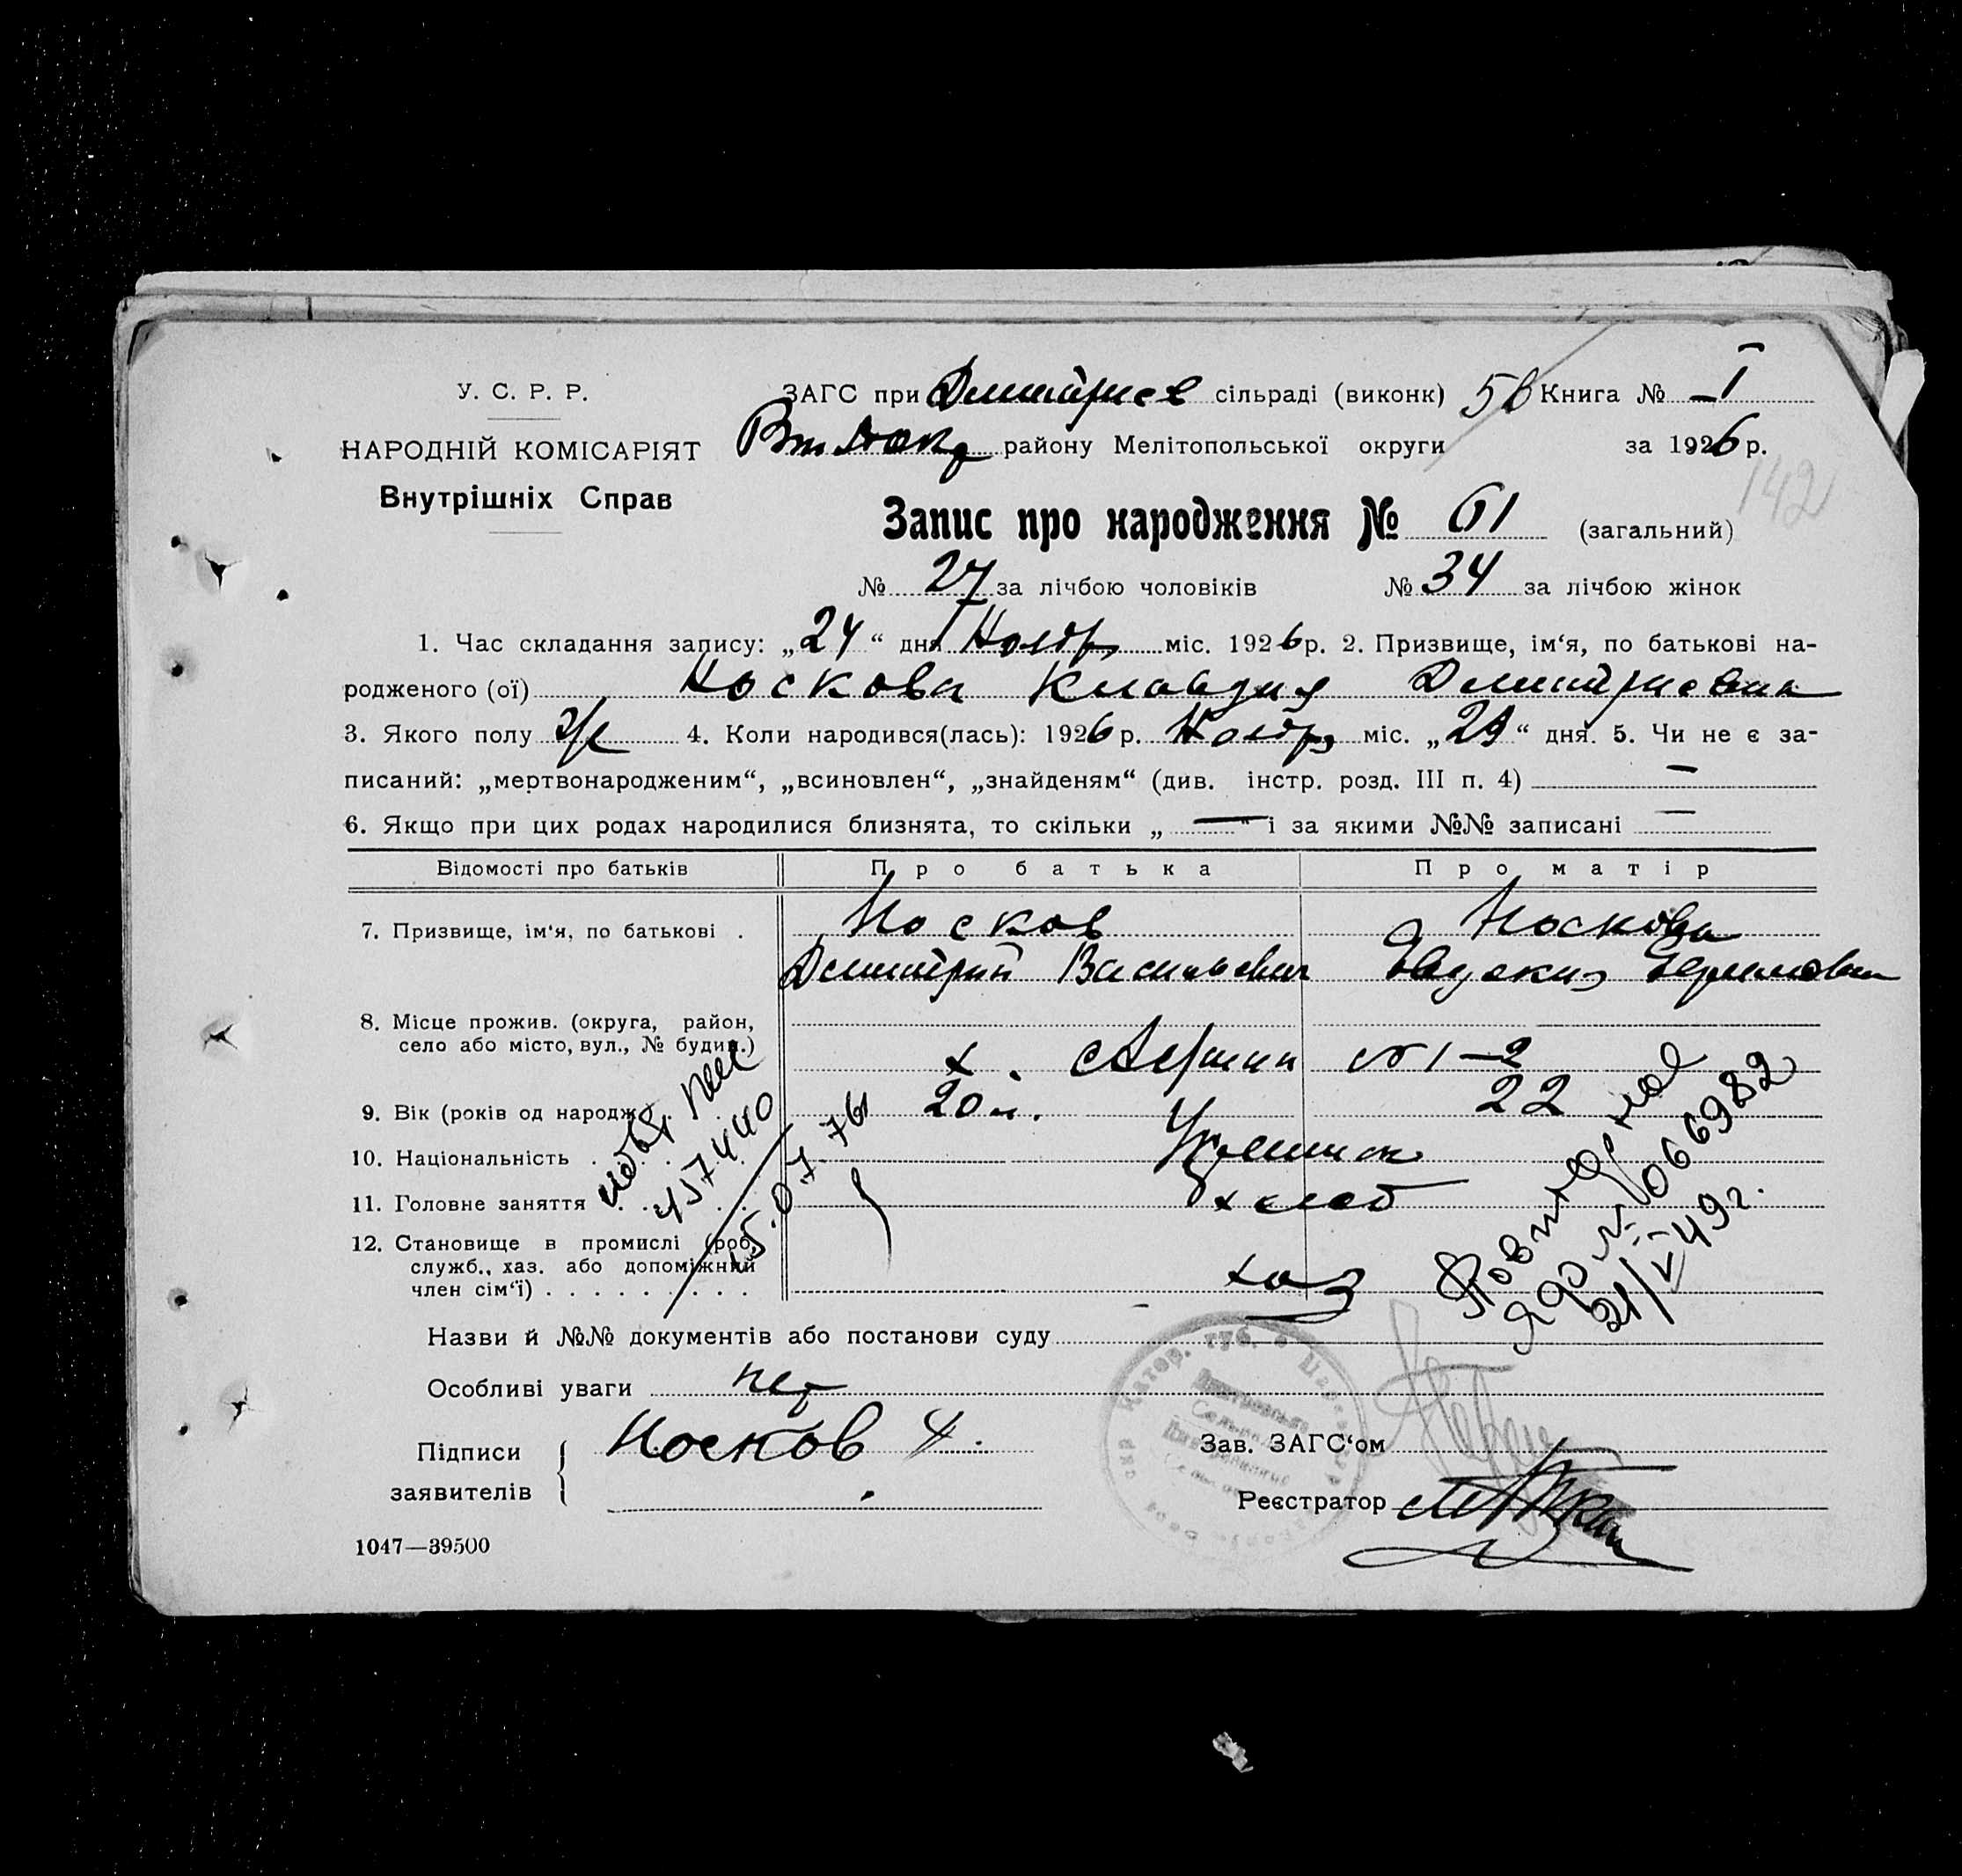 У. С. Р. Р.
НАРОДНІЙ КОМІСАРІЯТ
Внутрішніх Справ
ЗАГС при Дмитриев сільраді (виконк) Книга № I
району Мелітопольської округи за 1926 р.
142
Запис про народження № 61 (загальний)
№ 27 за лічбою чоловіків № 34 за лічбою жінок
1. Час складання запису: „24“ дня Ноябр міс. 1926 р. 2. Призвище, ім'я, по батькові на-
родженого (ої) Носкова Клавдия Дмитриевна
3. Якого полу ж 4. Коли народився(лась): 1926 р. Ноябр міс. „ “ дня. 5. Чи не є за-
писаний: „мертвонародженим“, „всиновлен“, „знайденям“ (див. інстр. розд. III п. 4) —
6. Якщо при цих родах народилися близнята, то скільки „ — “ і за якими №№ записані —
Відомості про батьків Про батька Про матір
7. Призвище, ім'я, по батькові . Носков Носкова
Дмитрий Васильевич Евдокия
8. Місце прожив. (округа, район,
село або місто, вул., № будин.)
х. № 1—2
9. Вік (років од народж.) 20 л. 22
10. Національність .
11. Головне заняття . хлеб
12. Становище в промислі (роб.
служб., хаз. або допоміжний
член сім'ї) . . . . . . . . . хаз
457440
15.07.76
Повторное
№ 066982
21/V-49г.
Назви й №№ документів або постанови суду
Особливі уваги нет
Підписи
заявителів
Носков Д.
Зав. ЗАГС'ом
Реєстратор
1047—39500